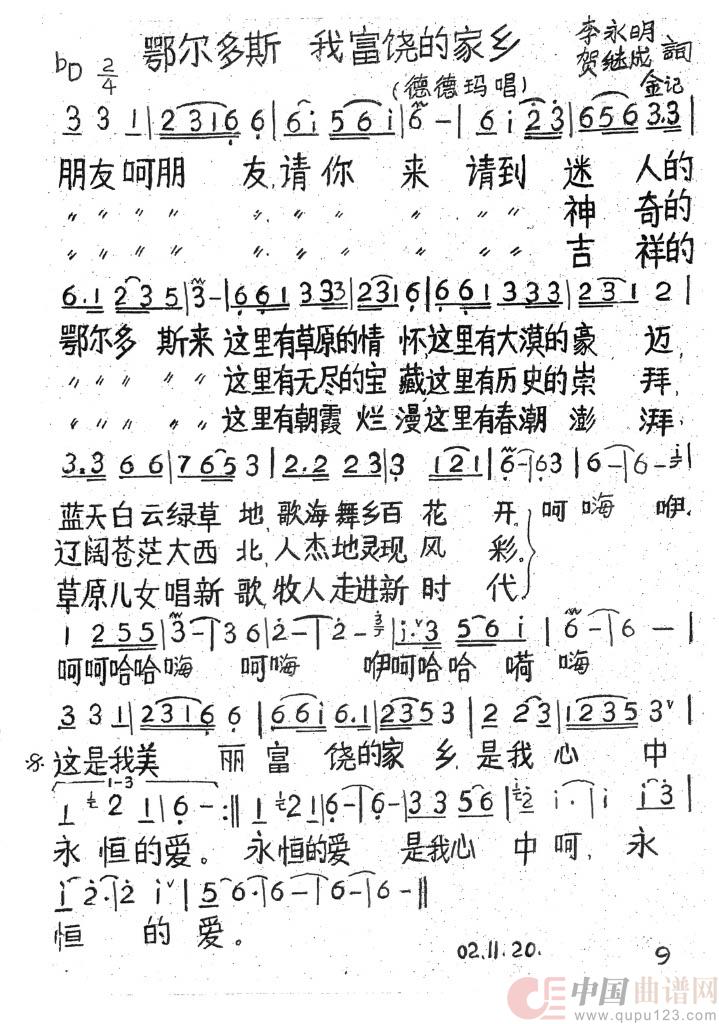 鄂尔多斯 我富饶的家乡
李永明
贺继成 詞
(德德玛唱) 金记
bD 2/4
3 3 1|2 3 1 6 6|6 i 5 6 i|6 -|6 i 2 3|6 5 6 3.3|
朋友呵朋 友,请你 来 请到 迷 人的
〃 〃 〃 〃 〃. 〃 〃 〃 〃 〃 神 奇的
〃 〃 〃 〃 〃. 〃 〃 〃 〃 〃 吉 祥的
6.1 2 3 5|3-|6 6 1 3 3 3 3|2 3 1 6|6 6 1 3 3 3|2 3 1 2|
鄂尔多 斯来 这里有草原的情 怀,这里有大漠的豪 迈,
〃 〃 〃 〃 〃 这里有无尽的宝 藏这里有历史的崇 拜,
〃 〃 〃 〃 〃 这里有朝霞 烂 漫这里有春潮 澎 湃,
3.3 6 6|7 6 5 3|2.2 2 3|3 1 2 1|6-|6 3|6-|6-
蓝天白云绿草 地,歌海舞乡百 花 开, 呵嗨 咿
辽阔苍茫大西 北,人杰地灵现 风 彩.
草原儿女唱新 歌,牧人走进新 时 代
1 2 5 5|3-|3 6|2-|2-|i.3 5 6 i|6-|6 -|
呵呵哈哈嗨 呵嗨 咿呵哈哈 嗬 嗨
3 3 1|2 3 1 6 6|6 6 i 6.1|2 3 5 3|2 2 3|1 2 3 5 3|
※ 这是我美 丽 富 饶的家 乡,是我 心 中
1-3
1 2 1|6 -:||1 2 1|6-|6-|3 3 5 6|2 i·|i· i 3|
永 恒的爱。 永恒的爱 是我心 中 呵, 永
i 2·|2 i|5 6·|6-|6-|6-||
恒 的 爱。
02.11.20.
9
中国曲谱网
www.qupu123.com